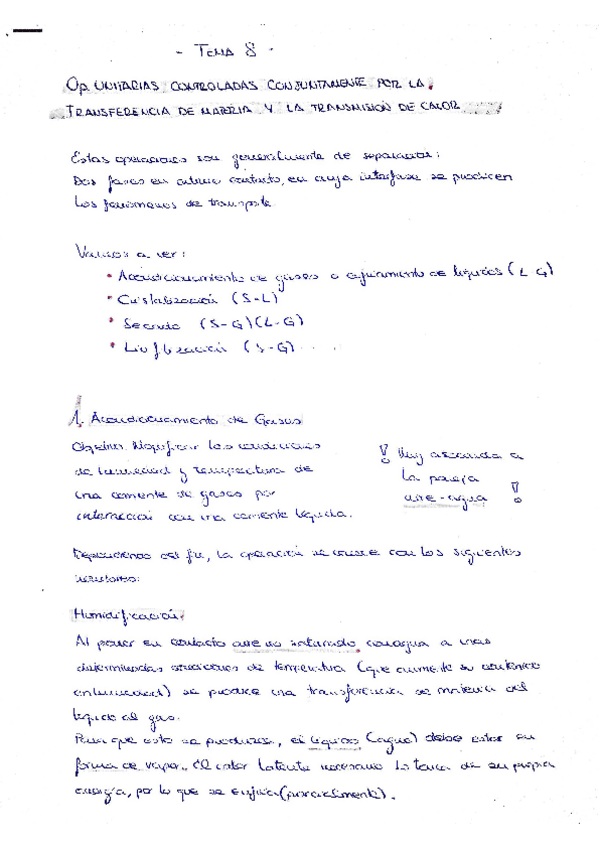 - Tema 8 -
Op. UNITARIAS CONTROLADAS CONJUNTAMENTE POR LA
TRANSFERENCIA DE MATERIA Y LA TRANSMISIÓN DE CALOR
Estas operaciones son generalmente de separación:
Dos fases en íntimo contacto, en cuya interfase se producen
los fenómenos de transporte
Vamos a ver:
• Acondicionamiento de gases o enfriamiento de líquidos (L-G)
• Cristalización (S-L)
• Secado (S-G)(L-G)
• Liofilización (S-G) ....
1. Acondicionamiento de Gases
Objetivo: Modificar las condiciones
de humedad y temperatura de
una corriente de gases por
interacción con una corriente líquida.
¡ Muy asociada a
la pareja
aire-agua !
Dependiendo del fin, la operación se conoce con los siguientes
nombres:
Humidificación:
Al poner en contacto aire no saturado con agua a unas
determinadas condiciones de temperatura (que aumente su contenido
en humedad) se produce una transferencia de materia del
líquido al gas.
Para que esto se produzca, el líquido (agua) debe estar en
forma de vapor. El calor latente necesario lo toma de su propia
energía, por lo que se enfría (parcialmente).